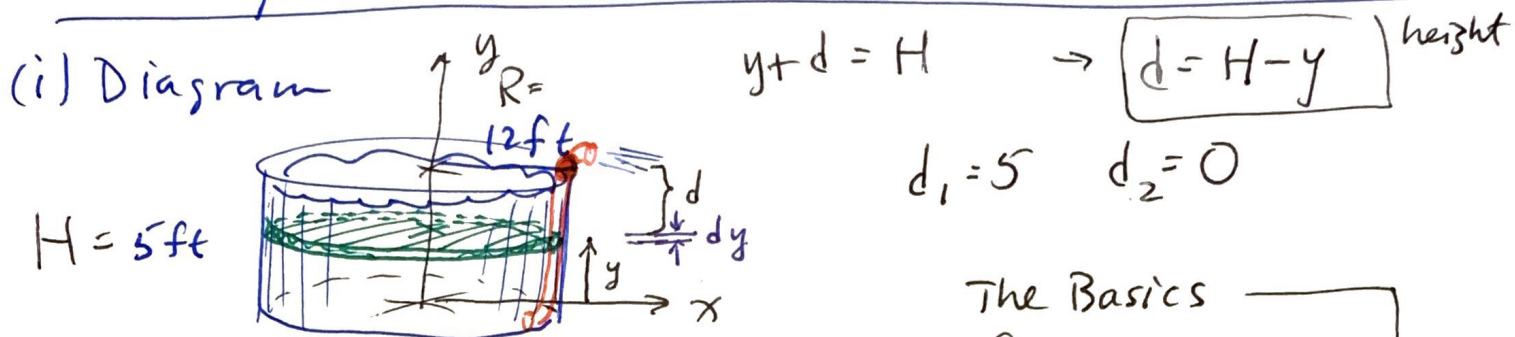 (i) Diagram
y
R=
12ft
H = 5ft
d
dy
y
x
y+d = H → d = H-y height
d₁ = 5 d₂ = 0
The Basics